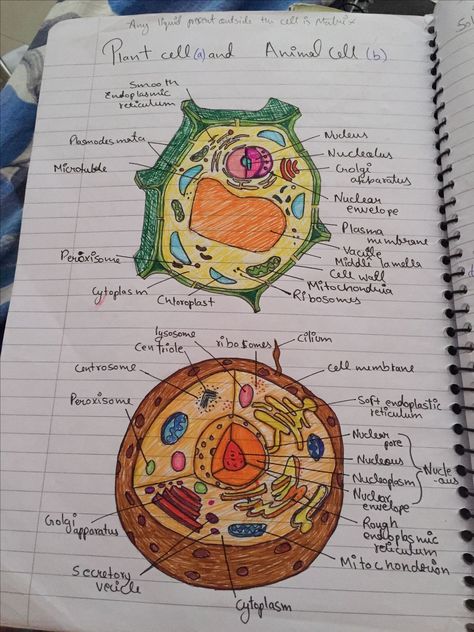 Any liquid present outside the cell is Matrix
Plant cell (a) and Animal Cell (b)
Smooth
Endoplasmic
reticulum
Plasmodesmata
Microtubule
Peroxisome
Cytoplasm
Chloroplast
Nucleus
Nucleolus
Golgi
apparatus
Nuclear
envelope
Plasma
membrane
Vacuole
Middle lamella
Cell wall
Mitochondria
Ribosomes
lysosome
Centriole
Centrosome
Peroxisome
ribosomes
cilium
cell membrane
Soft endoplastic
reticulum
Nuclear
pore
Nucleous
Nucleoplasm
Nuclear
envelope
Nucle
-aus
Rough
endoplasmic
reticulum
Mitochondrion
Golgi
apparatus
Secretory
vericle
Cytoplasm